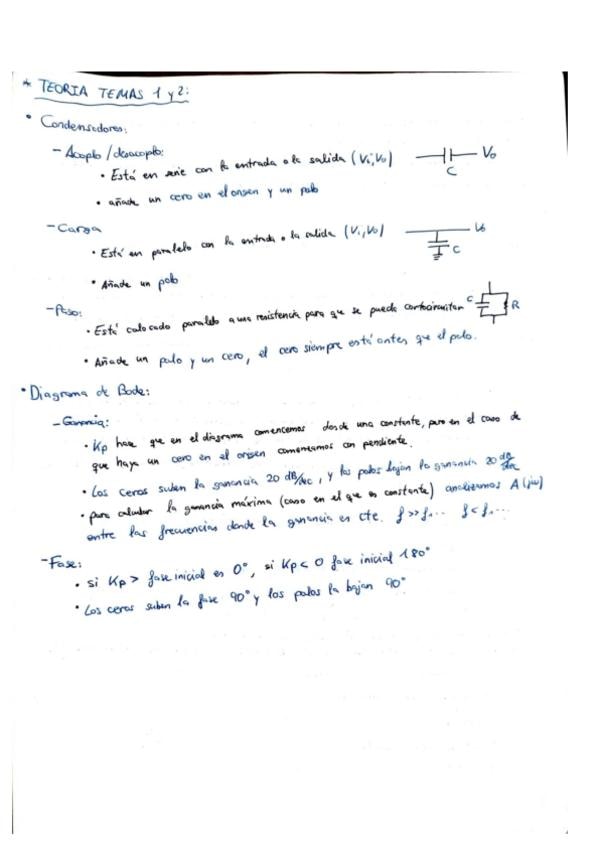 * TEORIA TEMAS 1 y 2:
• Condensadores:
- Acoplo / desacoplo:
• Está en serie con la entrada o la salida (Vi, Vo)
Vo
C
• añade un cero en el origen y un polo
- Carga
• Está en paralelo con la entrada o la salida (Vi, Vo)
Vo
C
• Añade un polo
- Paso:
• Está colocado paralelo a una resistencia para que se pueda cortocircuitar
C
R
• Añade un polo y un cero, el cero siempre está antes que el polo.
• Diagrama de Bode:
- Ganancia:
• Kp hace que en el diagrama comencemos desde una constante, pero en el caso de
que haya un cero en el origen comenzamos con pendiente.
• Los ceros suben la ganancia 20 dB/dec, y los polos bajan la ganancia 20 dB/dec
• para calcular la ganancia máxima (caso en el que es constante) analizamos A(jω)
entre las frecuencias donde la ganancia es cte. f >> f1... f < f1...
- Fase:
• si Kp > fase inicial es 0°, si Kp < 0 fase inicial 180°
• Los ceros suben la fase 90° y los polos la bajan 90°